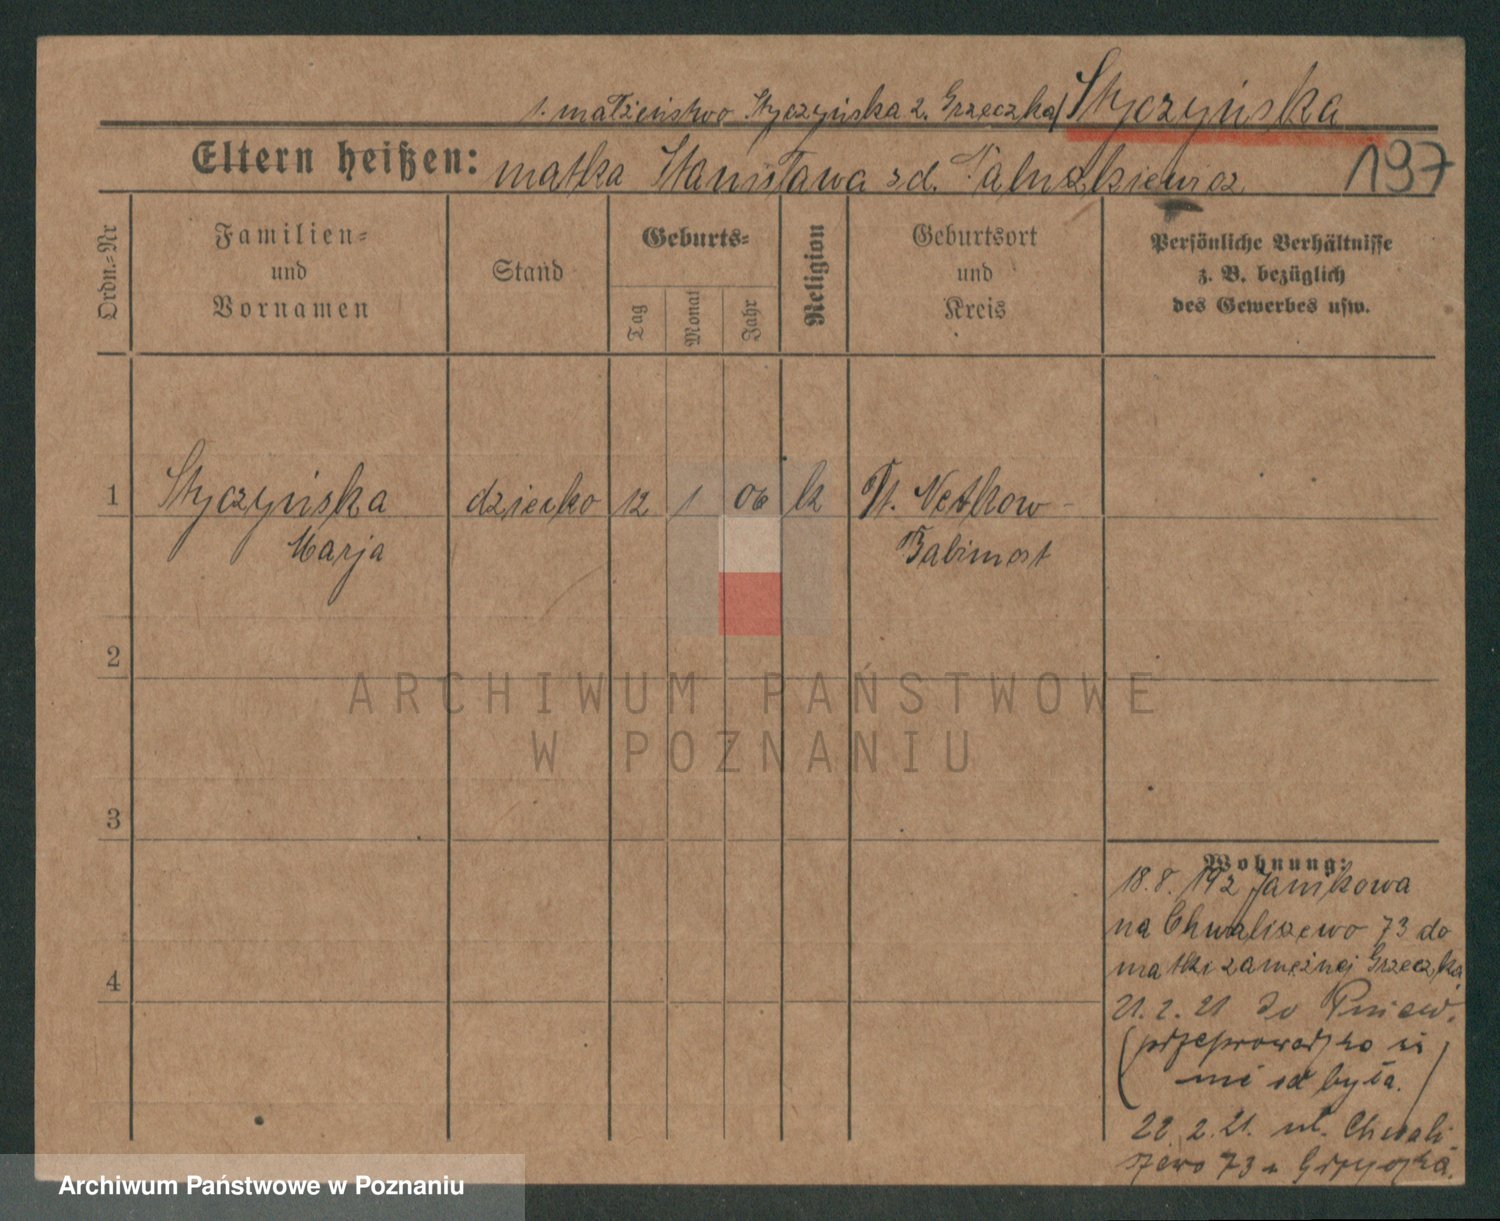 1. małżeństwo Styczyńska 2. Grzeczka) Styczyńska
Eltern heißen: matka Stanisława zd. Paluszkiewicz 197
Ordn.=Nr
Familien=
und
Vornamen
Stand
Geburts=
Tag
Monat
Jahr
Religion
Geburtsort
und
Kreis
Persönliche Verhältnisse
z. B. bezüglich
des Gewerbes usw.
1 Styczyńska dziecko 12 1 06 k Pt. Netkow -
Marja Babimost
2
3
4
Wohnung:
18.8.192 Janikowa
na Chwaliszewo 73 do
matki zamężnej Grzeczka
21.2.21 do Pniew.
(przeprowadzka
nie odbyła.)
22.2.21. ul. Chwali-
szewo 73
ARCHIWUM PAŃSTWOWE
W POZNANIU
Archiwum Państwowe w Poznaniu